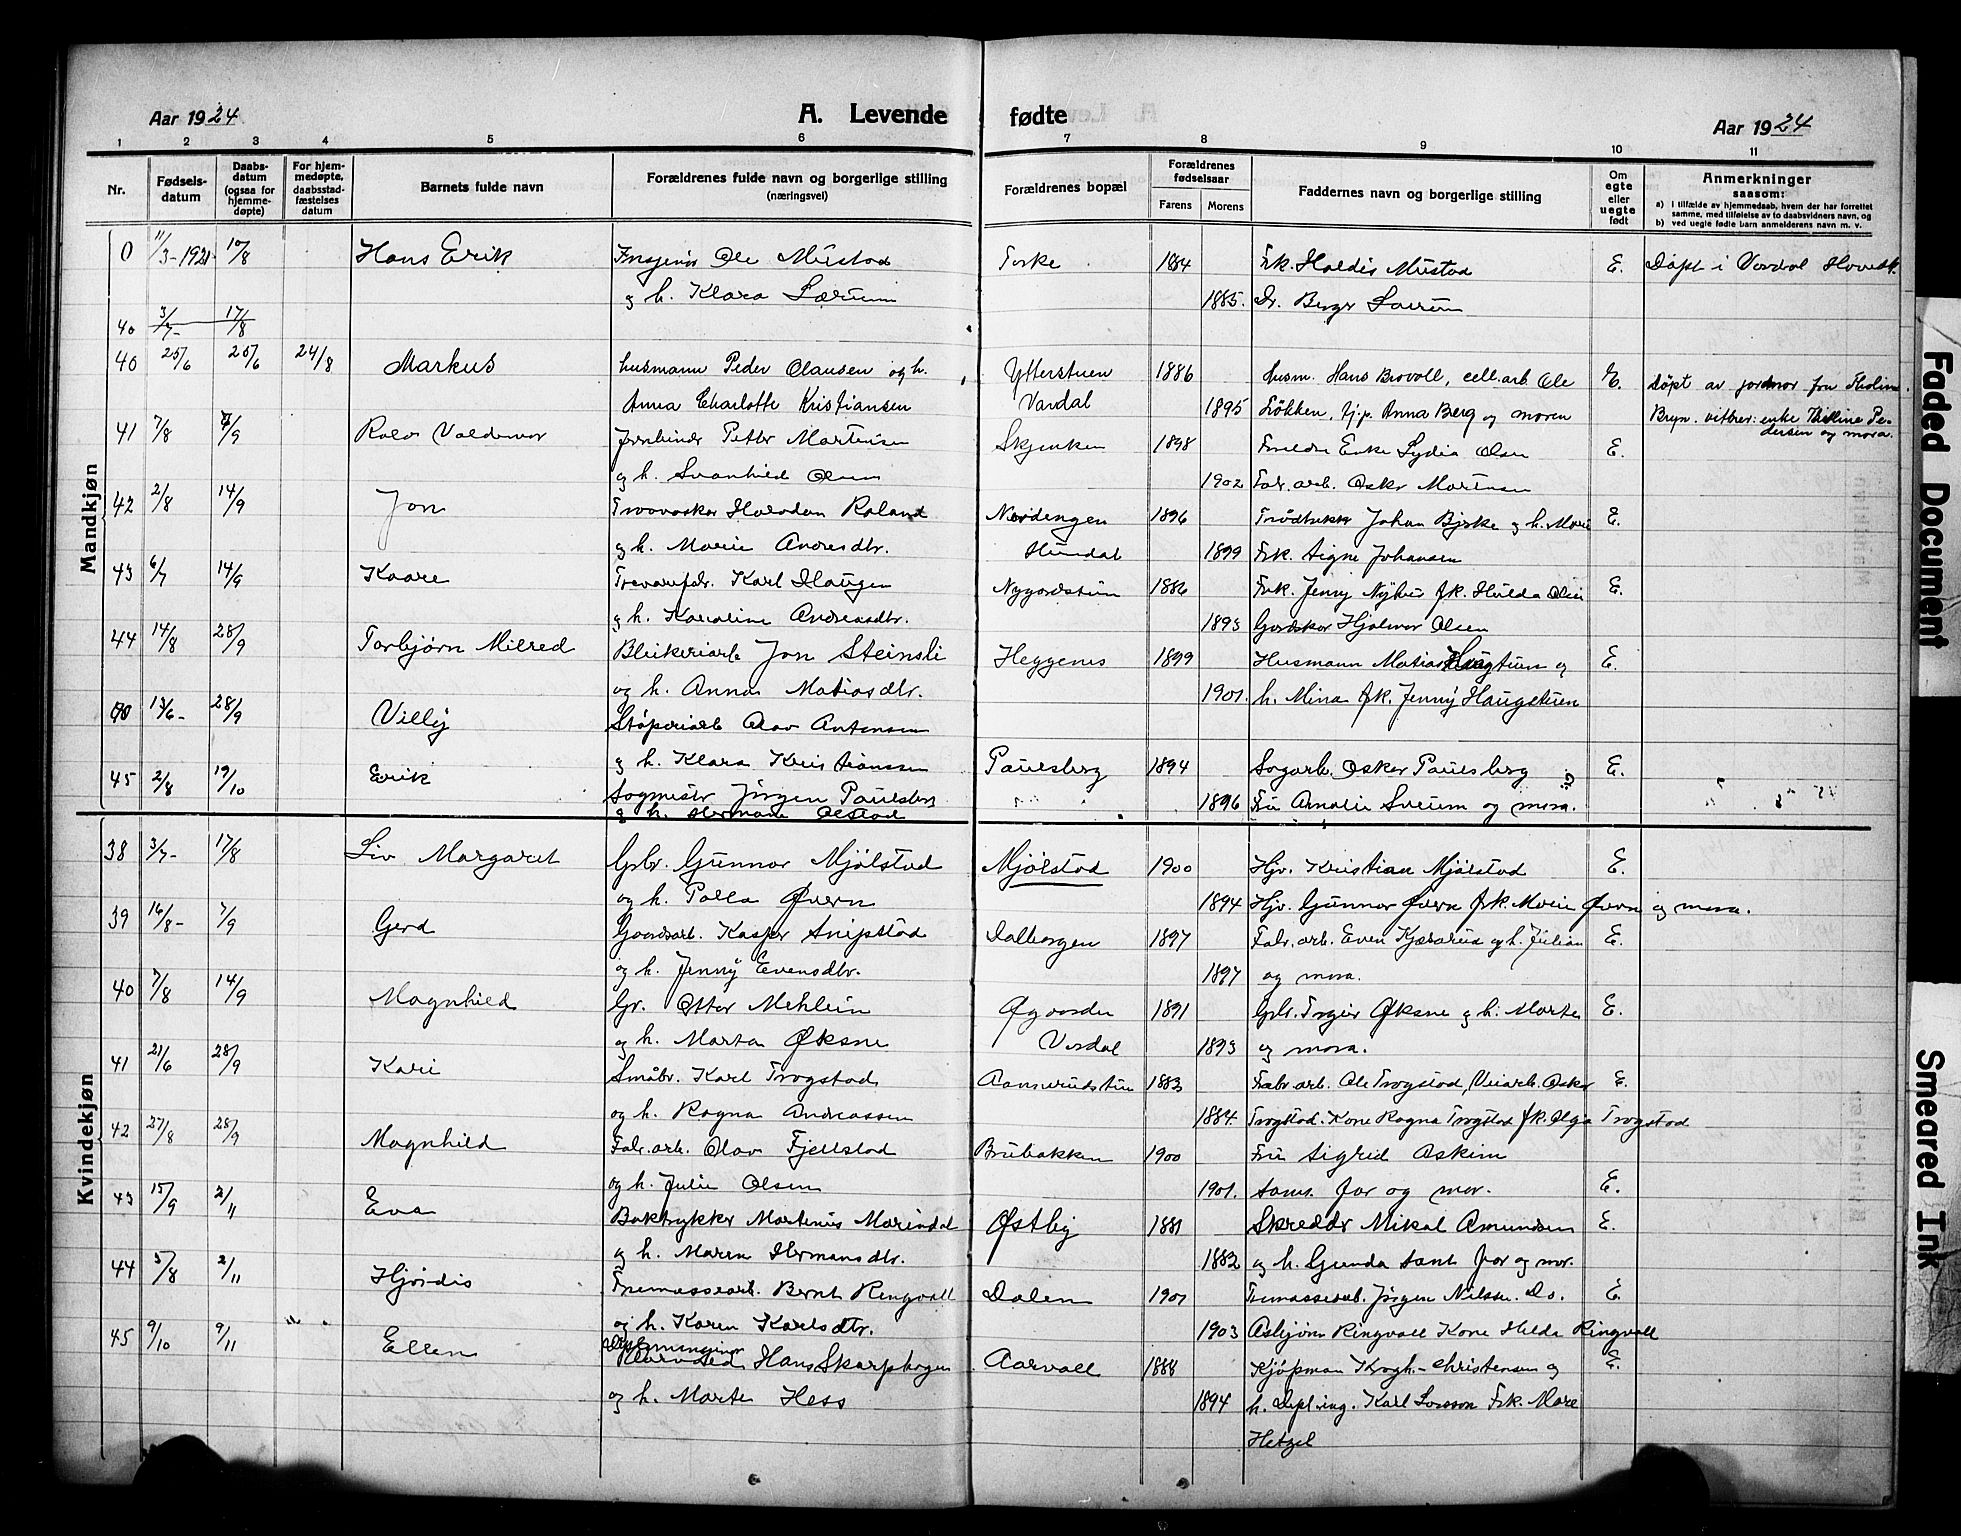 Aar 1924.
A. Levende
fødte
Aar 1924
1 2 3 4 5 6 7 8 9 10 11
Nr.
Fødsels-
datum
Daabs-
datum
(ogsaa for
hjemme-
døpte)
For hjem-
medøpte,
daabsstad-
fæstelses
datum
Barnets fulde navn
Forældrenes fulde navn og borgerlige stilling
(næringsvei)
Forældrenes bopæl
Forældrenes
fødselsaar
Farens
Morens
Faddernes navn og borgerlige stilling
Om
egte
eller
uegte
født
Anmerkninger
saasom:
a) I tilfælde av hjemmedaab, hvem der har forrettet
samme, med tilføielse av to daabsvidners navn, og
b) ved uegte fødte barn anmelderens navn m. v.
Mandkjøn
0 11/3-1921 10/8 Hans Erik Ole Mustad 1884 Frk. Haldis Mustad E. Døpt i Vardal
og h. Klara Sørum 1885. Dr. Berger
40 3/7- 17/8
40 25/6 25/6 24/8 Markus husmann Peder Olausen og h. Ytterstuen 1886 husm. Hans Brovoll, cell.arb. Ole E. døpt av jordmor fru
Anna Charlotte Kristiansen Vardal 1895 Løkken, tj.p. Anna Berg og moren Bryn. vitner: enke Pe-
dersen og mora.
41 7/8 7/9 Valdemar Petter Martinsen Skjenken 1898 Enke Lydia Olsen E.
og h. Svanhild Olsen 1902 Fabr. arb. Oskar Martinsen
42 2/8 14/9 Jon Halvdan Roland Nordengen 1896 Johan Bjerke og h. Marie E.
og h. Marie Andersdtr. Hundal 1899 Frk. Signe Johansen
43 6/7 14/9 Kaare Karl Haugen Nygardstuen 1886 Frk. Jenny frk. Hulda Olsen E.
og h. Karoline Andreasdtr. 1893 Hjalmar Olsen
44 14/8 28/9 Torbjørn Milred Blikeriarb Jon Steinsli Heggenes 1899 Husmann Matias Haugtuen og E.
og h. Anna Matiasdtr. 1901. h. Mina frk. Jenny Haugstuen
13/6- 28/9 Villy Støperiarb Olav Antonsen
og h. Klara Kristiansen
45 2/8 19/10 Erik Sagmester Jørgen Paulsberg Paulsberg 1894 Sagarb. Oskar Paulsberg E.
og h. Olstad 1896 Fru Amalie og mora.
Kvindekjøn
38 3/7- 17/8 Liv Margaret Gbr. Gunnar Mjølstad Mjølstad 1900 Hjv. Kristian Mjølstad E.
og h. Øvern 1894 Hjv. Gunnar Øvern frk. Marie Øvern og mora.
39 16/8- 7/9 Gerd Gaardsarb. Kasper Snipstad Dalborgen 1897 Fabr.arb. Even og h. Julian E.
og h. Jenny Evensdtr. 1897 og mora.
40 7/8 14/9 Magnhild Gr. Otter Mehlum Øgaarden 1891 Gbr. Øksne og h. Marte E.
og h. Marta Øksne Vardal 1893 og mora.
41 21/6 28/9 Kari Småbr. Karl Trogstad 1883 Fabr.arb. Ole Trogstad, Veiarb. Oskar E.
og h. Ragna Andreassen 1884. Trogstad. Kone Ragna Trogstad frk. Olga Trogstad
42 27/8 28/9 Magnhild Fabr.arb. Olav Fjellstad Brubakken 1900 Fru Sigrid Askim
og h. Julie Olsen 1901. samt far og mor. E.
43 15/9 2/11 Eva Boktrykker Martinus Mariendal Østby 1881 Skredder Mikal Amundsen E.
og h. Maren Hermansdtr. 1882 og h. Gunda samt far og mor.
44 3/8 2/11 Hjørdis Tremassearb. Bernt Ringvoll Dalen 1901 Tremassearb. Jørgen Nilsen. Do. E.
og h. Karen Karlsdtr. 1903 Asbjørn Ringvoll Kone Helda Ringvoll
45 9/10 9/11 Ellen Hans Skarphagen Aarvoll 1888 Kjøpman Krogh-Christensen og E.
og h. Marte Hess 1894 h. Dipl.ing. Karl Frk. Mare
Hetzel
Faded Document
Smeared Ink